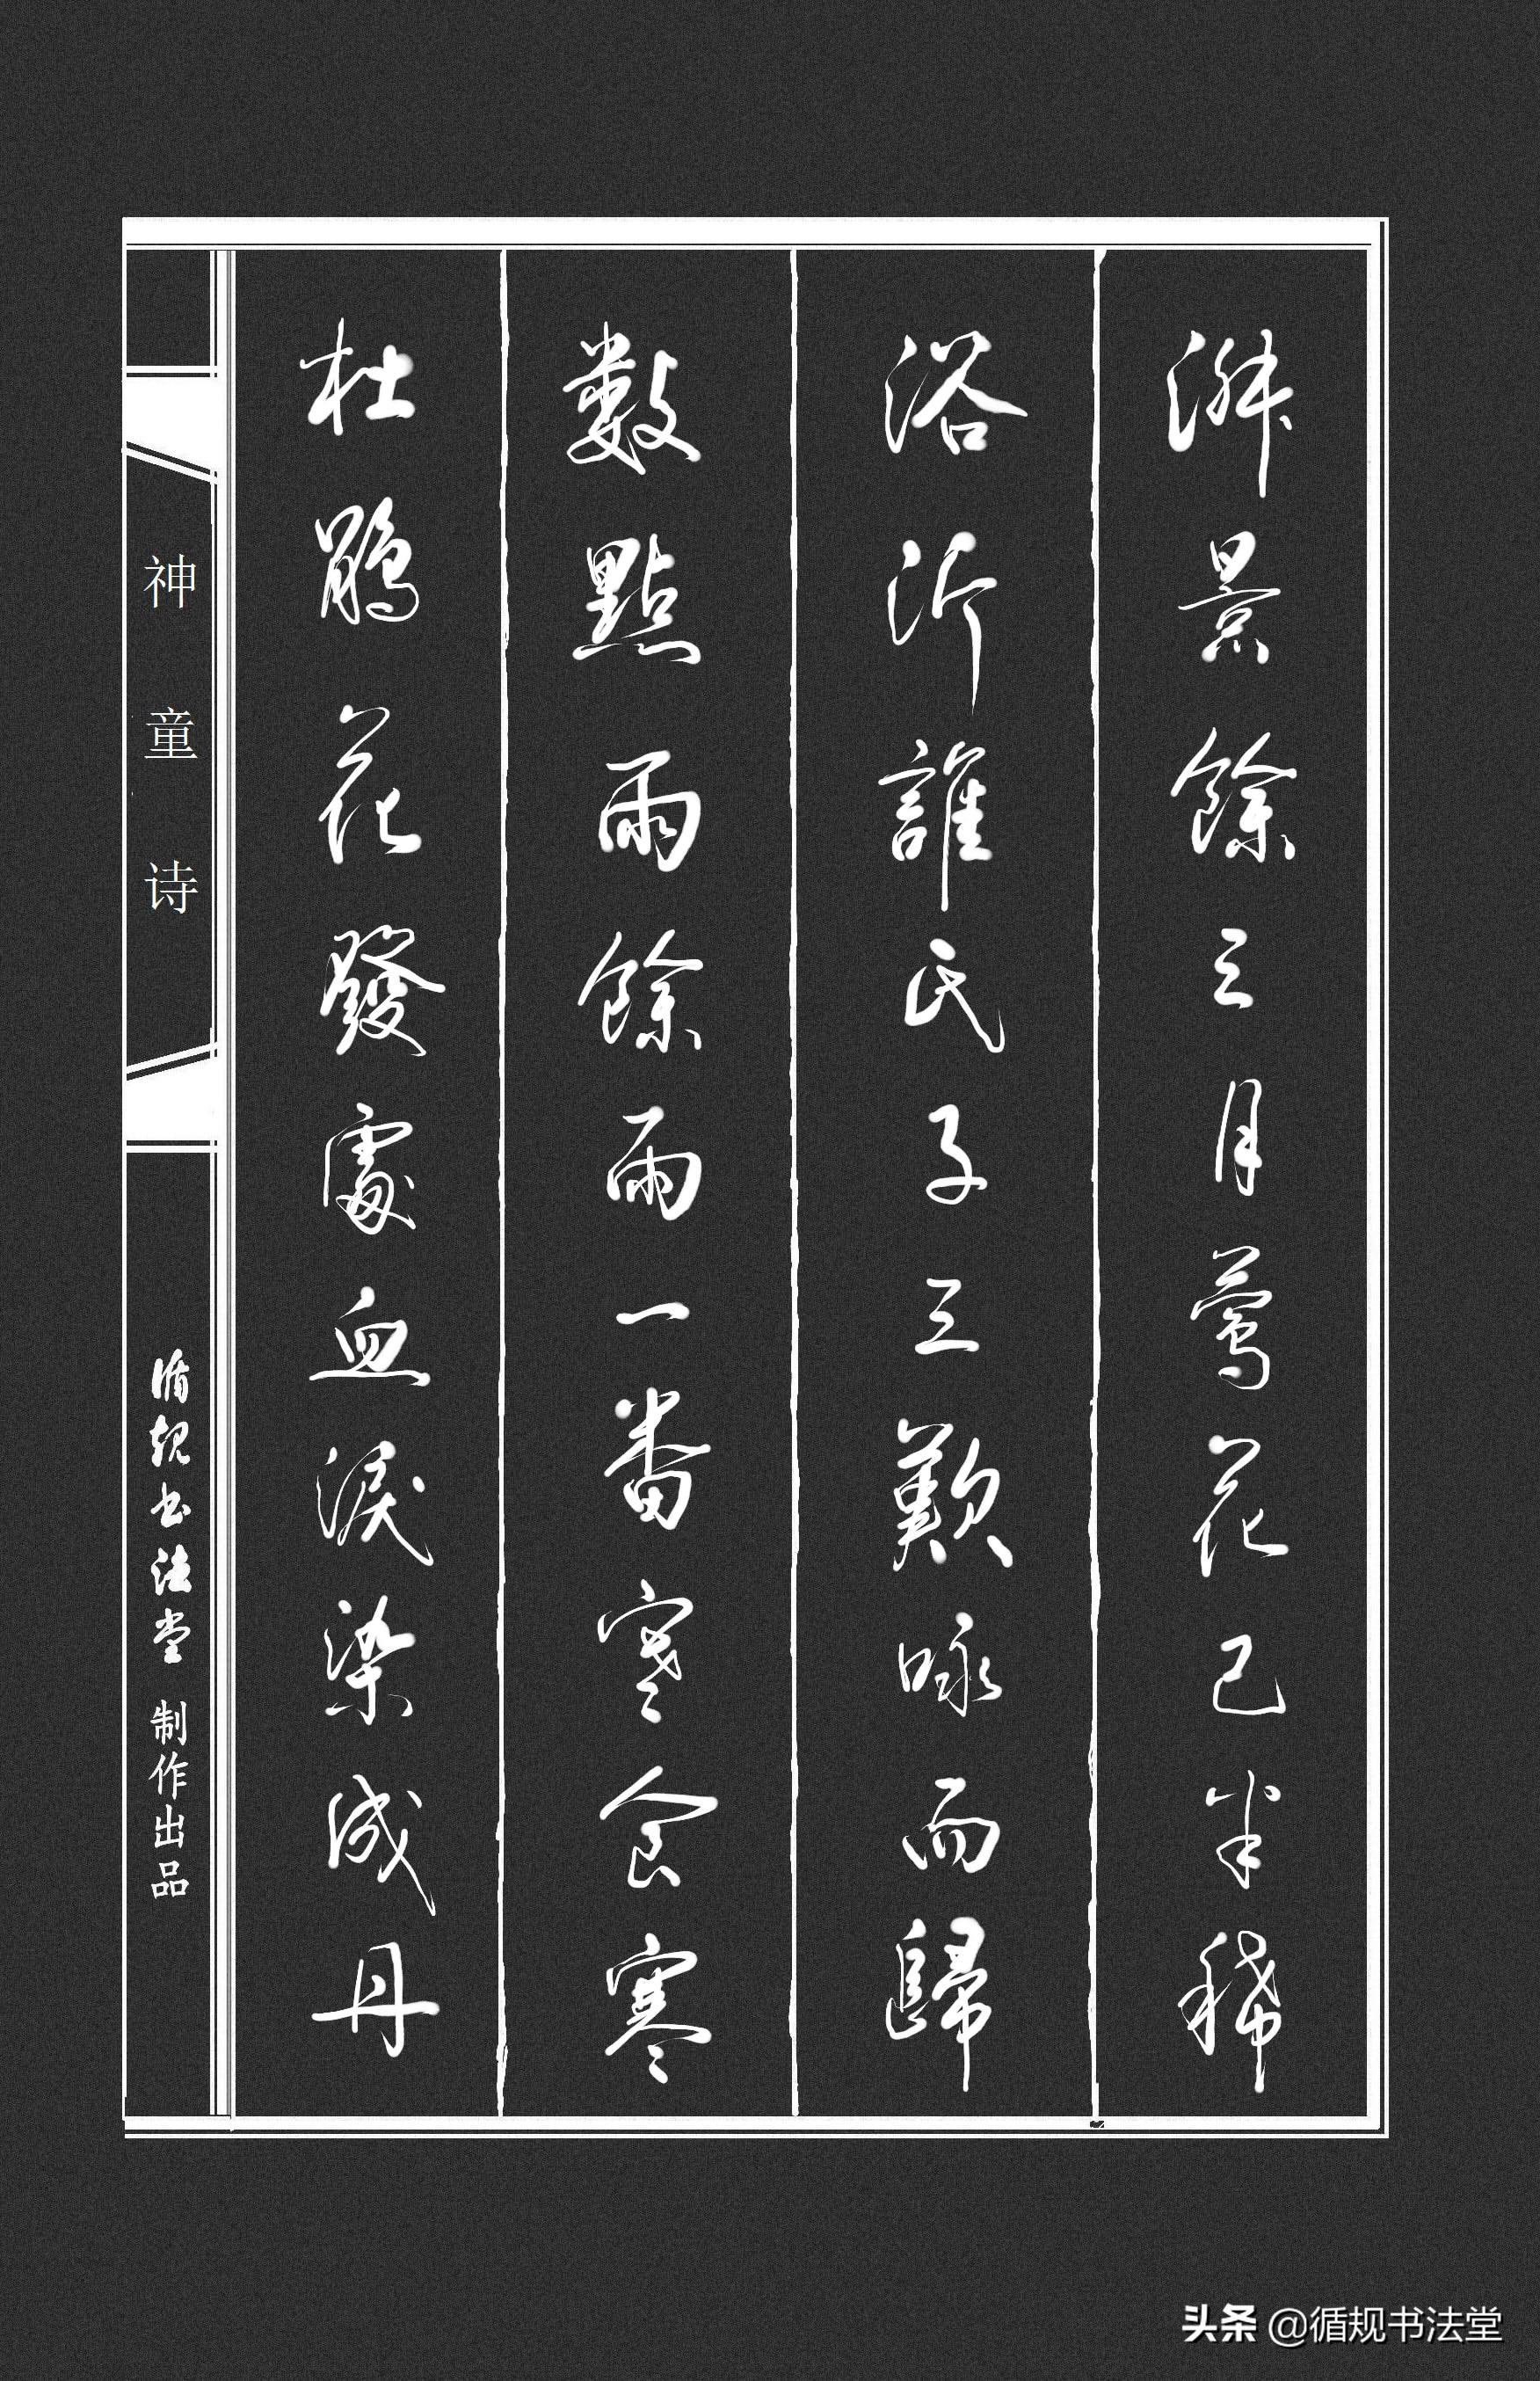 淑景餘三月鶯花已半稀
浴沂誰氏子三歎咏而歸
數點雨餘雨一番寒食寒
杜鵑花發處血淚染成丹
神童诗
循规书法堂 制作出品
头条 @循规书法堂